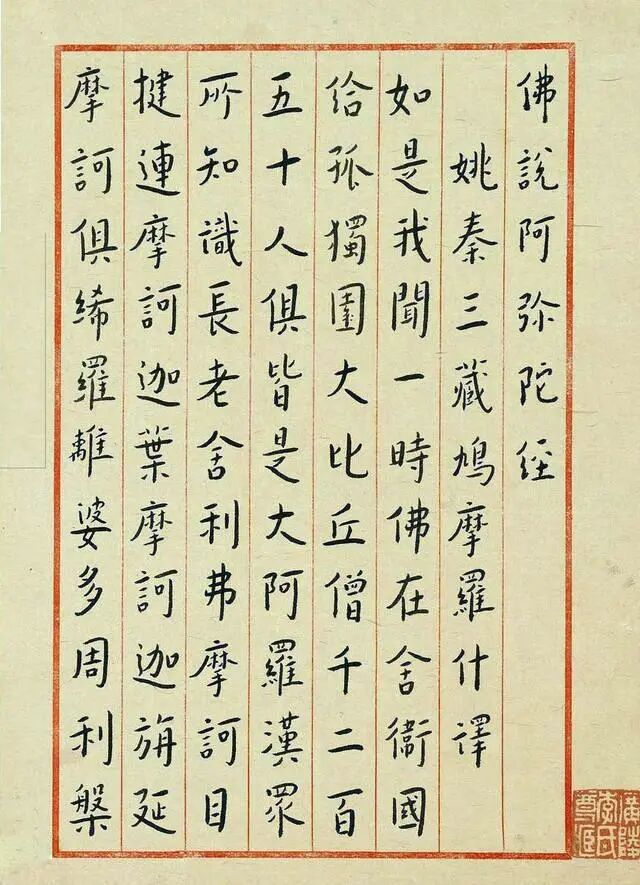 佛說阿弥陀经
姚秦三藏鳩摩羅什譯
如是我聞一時佛在舍衞國
给孤獨園大比丘僧千二百
五十人俱皆是大阿羅漢眾
所知識長老舍利弗摩訶目
揵連摩訶迦葉摩訶迦旃延
摩訶俱絺羅離婆多周利槃